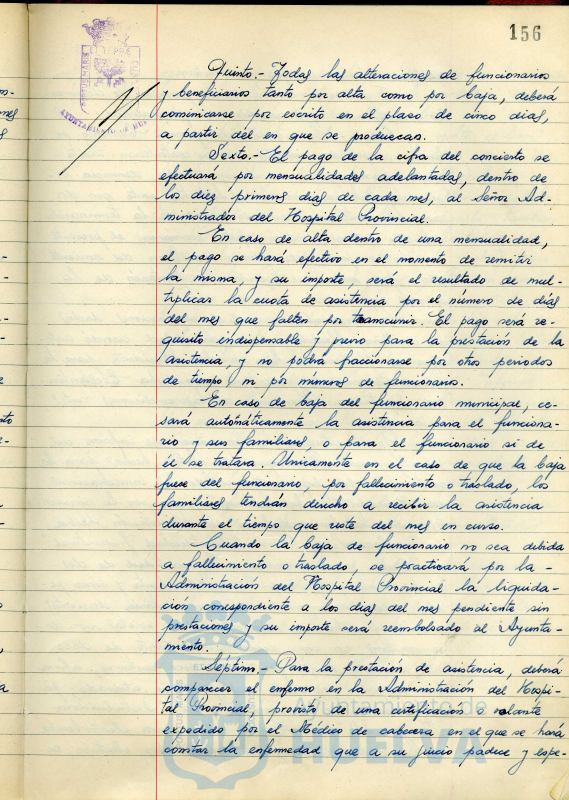 156
Quinto.- Todas las alteraciones de funcionarios
y beneficiarios tanto por alta como por baja, deberá
comunicarse por escrito en el plazo de cinco dias,
a partir del en que se produzcan.
Sexto.- El pago de la cifra del concierto se
efectuará por mensualidades adelantadas, dentro de
los diez primeros dias de cada mes, al Señor Ad-
ministrador del Hospital Provincial.
En caso de alta dentro de una mensualidad,
el pago se hará efectivo en el momento de remitir
la misma, y su importe, será el resultado de mul-
tiplicar la cuota de asistencia por el número de dias
del mes que falten por transcurrir. El pago será re-
quisito indispensable y previo para la prestación de la
asistencia, y no podrá fraccionarse por otros periodos
de tiempo ni por números de funcionarios.
En caso de baja del funcionario municipal, ce-
sará automáticamente la asistencia para el funciona-
rio y sus familiares, o para el funcionario si de
él se tratara. Unicamente en el caso de que la baja
fuese del funcionario, por fallecimiento o traslado, los
familiares tendrán derecho a recibir la asistencia
durante el tiempo que reste del mes en curso.
Cuando la baja de funcionario no sea debida
a fallecimiento o traslado, se practicará por la -
Administración del Hospital Provincial la liquida-
ción correspondiente a los dias del mes pendiente sin
prestaciones y su importe será reembolsado al Ayunta-
miento.
Séptim.- Para la prestación de asistencia, deberá
comparecer el enfermo en la Administración del Hospi-
tal Provincial, provisto de una certificación o volante
expedido por el Médico de cabecera en el que se hará
constar la enfermedad que a su juicio padece y espe-
Ayuntamiento de
HUELVA